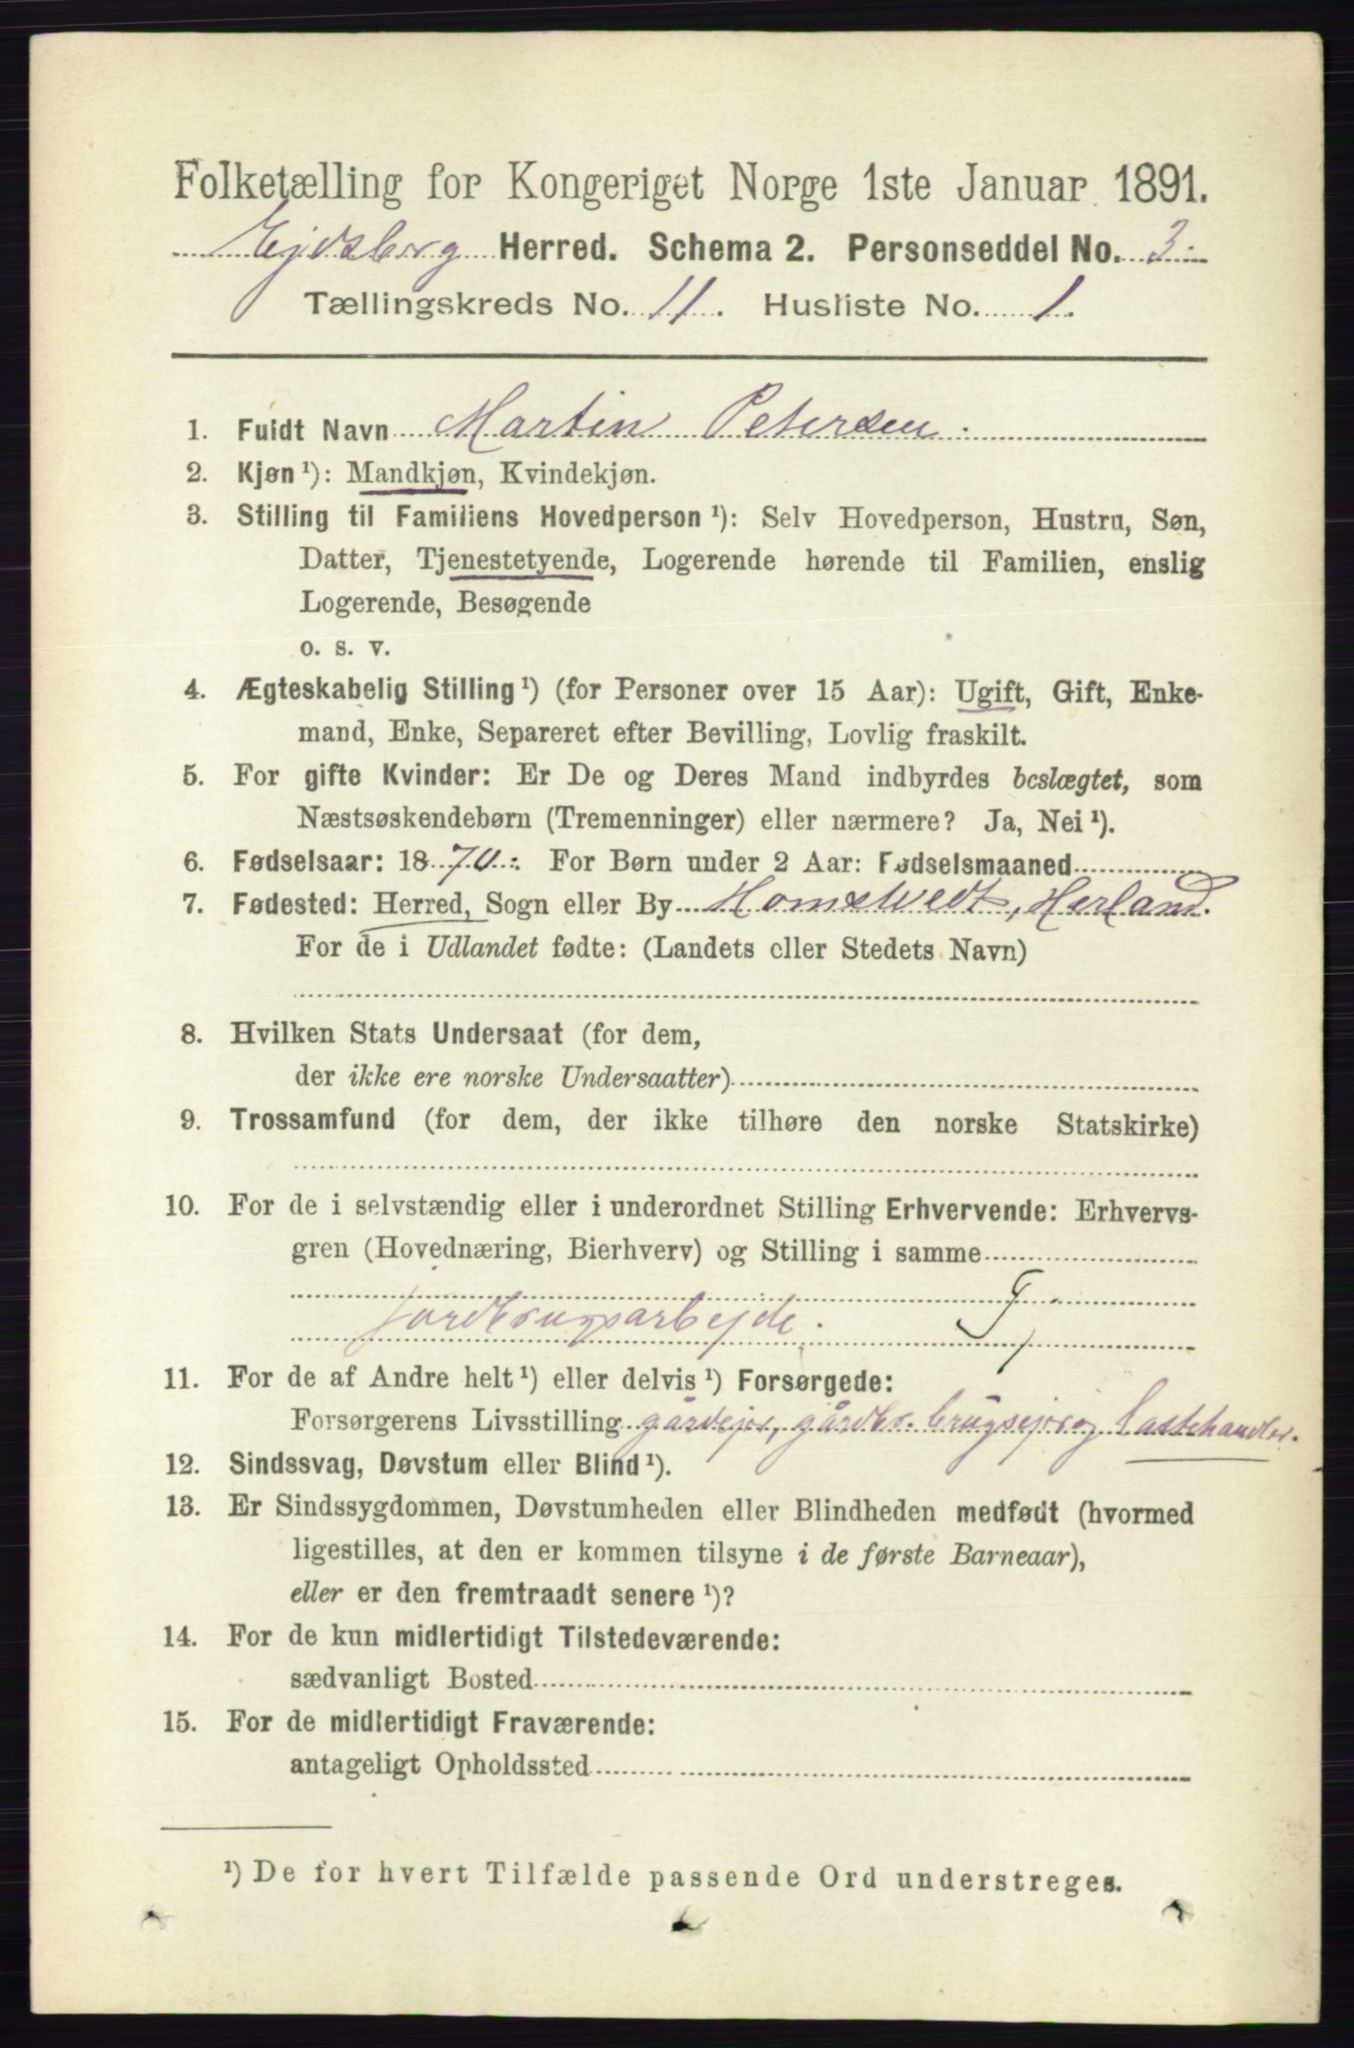 Folketælling for Kongeriget Norge 1ste Januar 1891.
Ejdsberg Herred. Schema 2. Personseddel No. 3.
Tællingskreds No. 11. Husliste No. 1.
1. Fuldt Navn Martin Petersen.
2. Kjøn ¹): Mandkjøn, Kvindekjøn.
3. Stilling til Familiens Hovedperson ¹): Selv Hovedperson, Hustru, Søn,
Datter, Tjenestetyende, Logerende hørende til Familien, enslig
Logerende, Besøgende
o. s. v.
4. Ægteskabelig Stilling ¹) (for Personer over 15 Aar): Ugift, Gift, Enke-
mand, Enke, Separeret efter Bevilling, Lovlig fraskilt.
5. For gifte Kvinder: Er De og Deres Mand indbyrdes beslægtet, som
Næstsøskendebørn (Tremenninger) eller nærmere? Ja, Nei ¹).
6. Fødselsaar: 1870. For Børn under 2 Aar: Fødselsmaaned
7. Fødested: Herred, Sogn eller By Homstvedt, Herland.
For de i Udlandet fødte: (Landets eller Stedets Navn)
8. Hvilken Stats Undersaat (for dem,
der ikke ere norske Undersaatter)
9. Trossamfund (for dem, der ikke tilhøre den norske Statskirke)
10. For de i selvstændig eller i underordnet Stilling Erhvervende: Erhvervs-
gren (Hovednæring, Bierhverv) og Stilling i samme
jordbrugsarbejde.
11. For de af Andre helt ¹) eller delvis ¹) Forsørgede:
Forsørgerens Livsstilling gårdejer, gårdbr. brugsejer og lasthandler.
12. Sindssvag, Døvstum eller Blind ¹).
13. Er Sindssygdommen, Døvstumheden eller Blindheden medfødt (hvormed
ligestilles, at den er kommen tilsyne i de første Barneaar),
eller er den fremtraadt senere ¹)?
14. For de kun midlertidigt Tilstedeværende:
sædvanligt Bosted
15. For de midlertidigt Fraværende:
antageligt Opholdssted
¹) De for hvert Tilfælde passende Ord understreges.